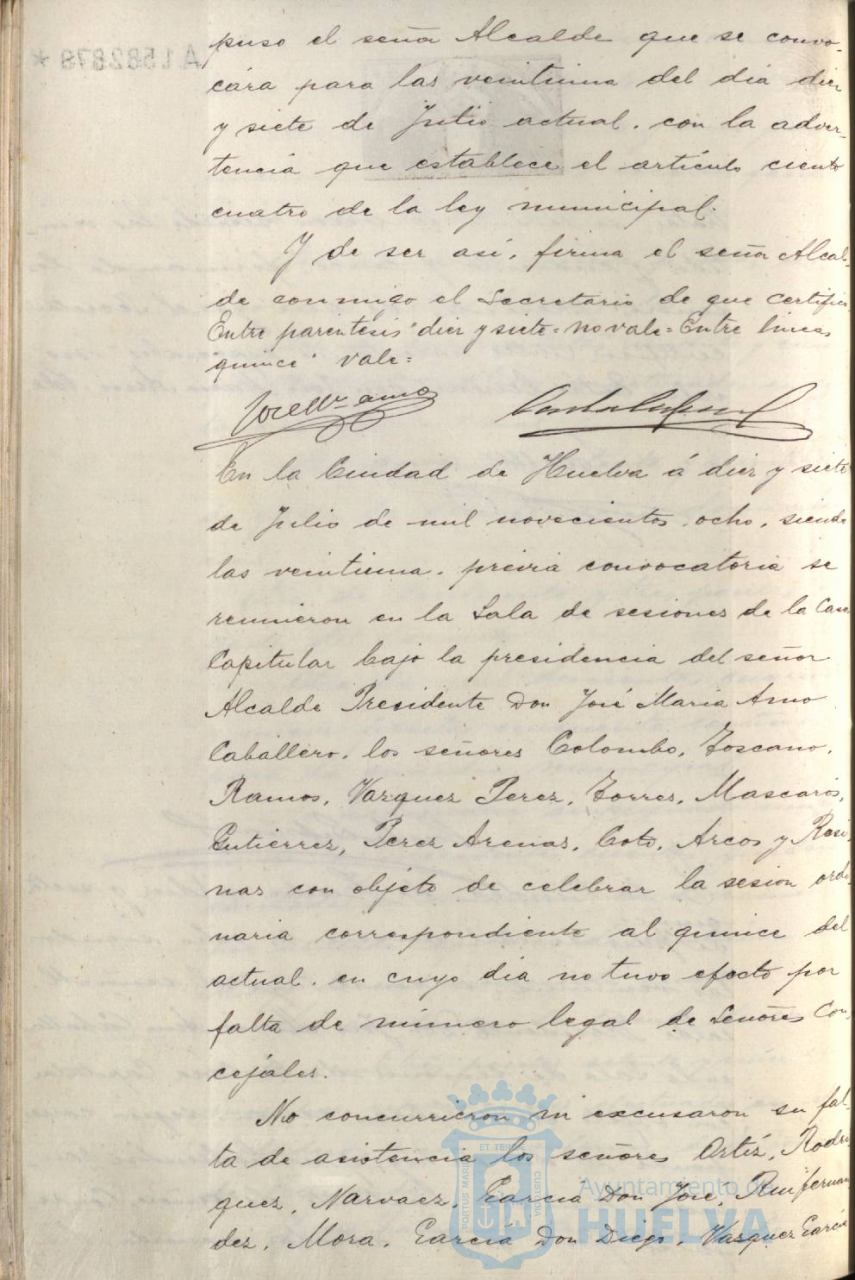 A1582879 *
puso el señor Alcalde que se convo-
cára para las veintiuna del dia diez
y siete de Julio actual, con la adver-
tencia que establece el artículo ciento
cuatro de la ley municipal.
Y de ser así, firma el señor Alcal-
de conmigo el Secretario de que certifico
Entre parentesis "diez y siete = no vale = Entre lineas
quince" vale =
En la Ciudad de Huelva á diez y siete
de Julio de mil novecientos ocho, siendo
las veintiuna, previa convocatoria se
reunieron en la Sala de sesiones de la Casa
Capitular bajo la presidencia del señor
Alcalde Presidente Don José Maria Amo
Caballero, los señores Colombo, Toscano,
Ramos, Vazquez Perez, Torres, Mascarós,
Gutiérrez, Perez Arenas, Coto, Arcos y Rosi-
nas con objeto de celebrar la sesion ordi-
naria correspondiente al quince del
actual, en cuyo dia no tuvo efecto por
falta de número legal de Señores Con-
cejales.
No concurrieron ni excusaron su fal-
ta de asistencia los señores Ortíz, Rodri-
guez, Narvaez, García Don José, Ruifernan-
dez, Mora, García Don Diego, Vazquez García
Ayuntamiento de
HUELVA